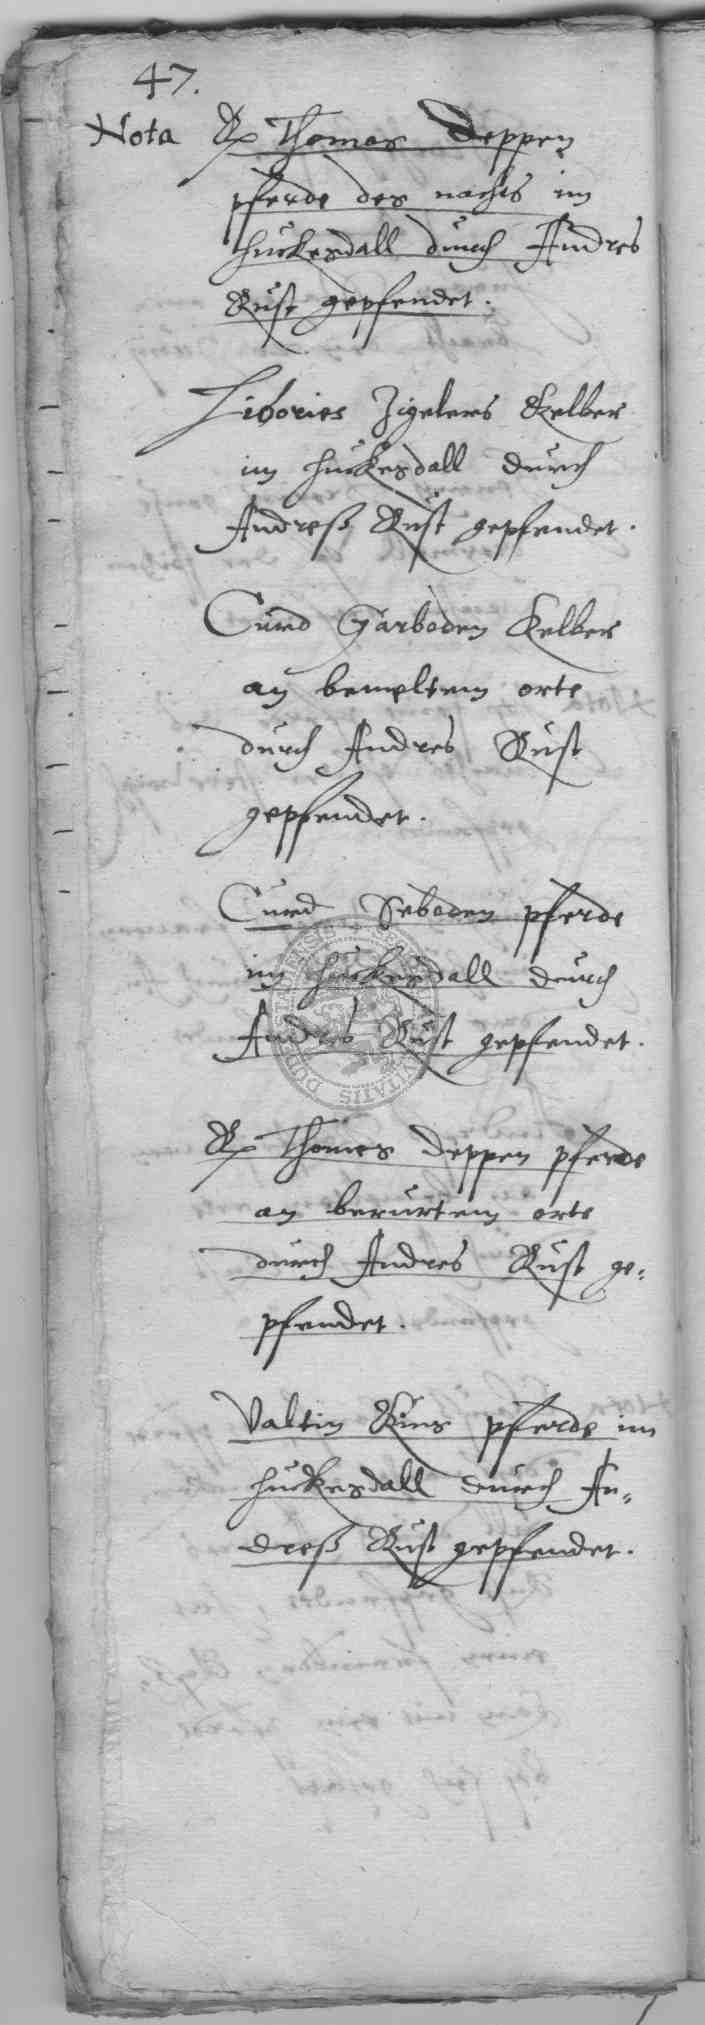 47.
Nota Rx Thomas Deppen
pferde des nachts im
Huckesdall durch Andres
Rust gepfendet.
Libories Zigelers Kelber
im Huckesdall durch
Andreß Rust gepfendet.
Curd Garboden Kelber
an bemeltem orte
durch Andres Rust
gepfendet.
Curd Seboden pferde
im Huckesdall durch
Andres Rust gepfendet.
Rx Thomes Deppen pferde
an berurtem orte
durch Andres Rust ge-
pfendet.
Valtin pferde im
Huckesdall durch An-
dreß Rust gepfendet.